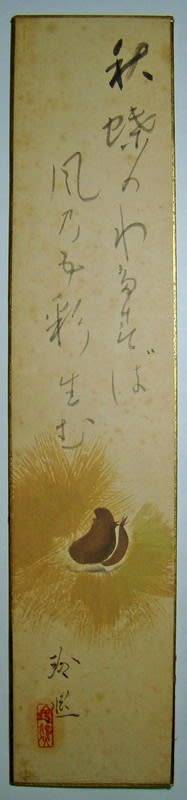 秋蝶のわたれば
風乃五彩生む